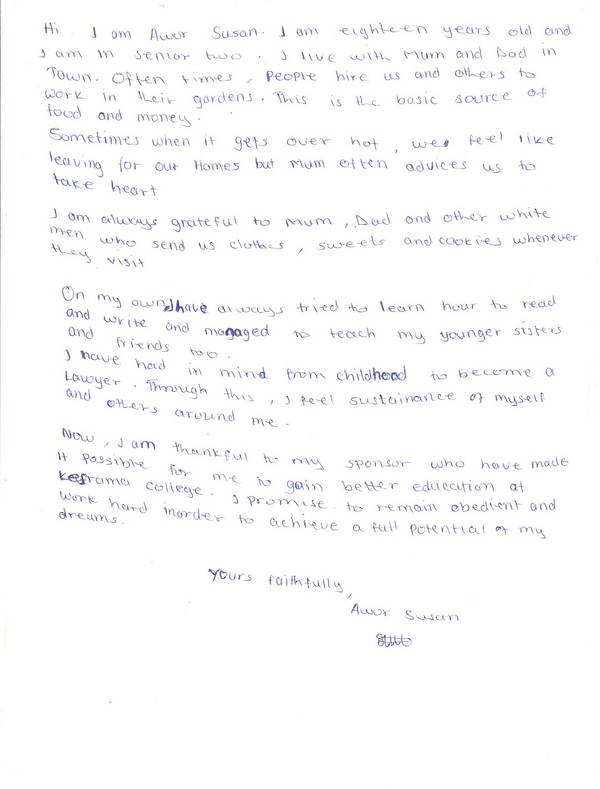 Hi. I am Awor Susan. I am eighteen years old and
I am in senior two. I live with Mum and Dad in
Town. Often times, People hire us and others to
work in their gardens. This is the basic source of
food and money.
Sometimes when it gets over hot, we feel like
leaving for our Homes but Mum often advices us to
take heart
I am always grateful to Mum, Dad and other white
men who send us clothes, sweets and cookies whenever
they visit
On my own I have always tried to learn hour to read
and write and managed to teach my younger sisters
and friends too.
I have had in mind from childhood to become a
Lawyer. Through this, I feel sustainance of myself
and others around me.
Now, I am thankful to my sponsor who have made
it possible for me to gain better education at
Kesframa college. I promise to remain obedient and
work hard inorder to achieve a full potential of my
dreams.
Yours faithfully,
Awor Susan